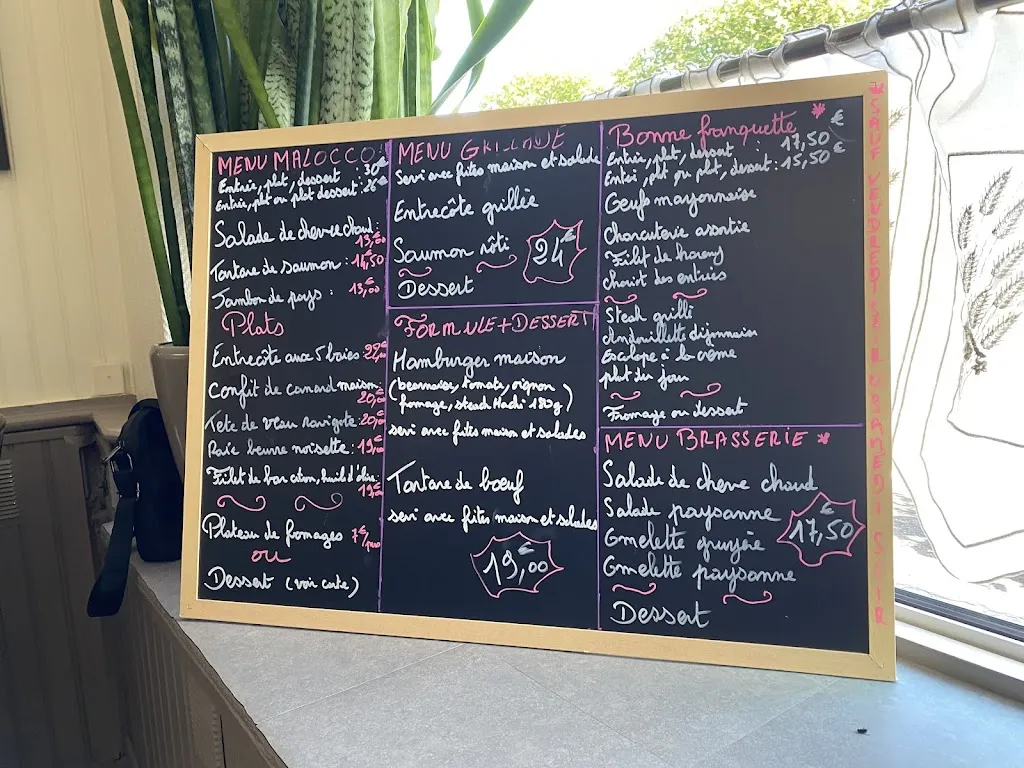 MENU MALOCCO
Entrée, plat, dessert : 30€
Entrée, plat ou plat dessert : 26€
Salade de chèvre chaud :
13,00€
Tartare de saumon : 14,50€
Jambon de pays : 13,00€
Plats
Entrecôte aux 5 baies 22,00€
Confit de canard maison :
20,00€
Tete de veau ravigote : 20,00€
Raie beurre noisette : 19,00€
Filet de bar citron, huile d'olive :
19,00€
Plateau de fromages 7€/pers
ou
Dessert (voir carte)
MENU GRILLADE
Servi avec frites maison et salade
Entrecôte grillée
Saumon rôti
24€
Dessert
FORMULE + DESSERT
Hamburger maison
(bearnaise, tomate, oignon
fromage, steack Haché 180g)
servi avec frites maison et salades
Tartare de bœuf
servi avec frites maison et salades
19,00€
Bonne franquette *
Entrée, plat, dessert : 17,50€
Entrée, plat ou plat, dessert : 15,50€
Oeufs mayonnaise
Charcuterie assortie
Filet de hareng
chariot des entrées
Steak grillé
Andouillette dijonnaise
Escalope à la crème
plat du jour
Fromage ou dessert
MENU BRASSERIE *
Salade de chevre chaud
Salade paysanne
Omelette gruyère
Omelette paysanne
17,50€
Dessert
* SAUF VENDREDI SOIR SAMEDI SOIR